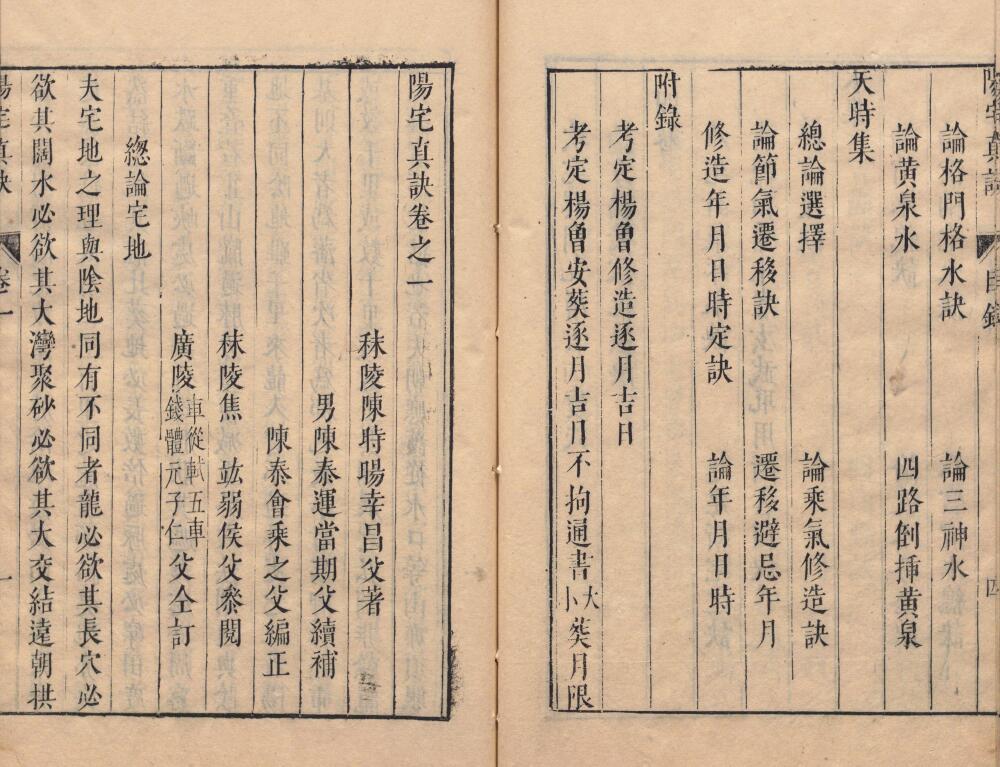 陽宅真訣 目錄 四
論格門格水訣 論三神水
論黃泉水 四路倒揷黃泉
天時集
總論選擇 論乘氣修造訣
論節氣遷移訣 遷移避忌年月
修造年月日時定訣 論年月日時
附錄
考定楊曾修造逐月吉日
考定楊曾安葬逐月吉日不拘通書大小葬月限
陽宅真訣卷之一
秣陵陳時暘幸昌父著
男陳泰運當期父續補
陳泰會乘之父編正
秣陵焦竑弱侯父叅閱
廣陵車從軾五車錢體元子仁父仝訂
總論宅地
夫宅地之理與陰地同有不同者龍必欲其長穴必
欲其闊水必欲其大灣聚砂必欲其大交結遠朝拱
陽宅真訣 卷一 一